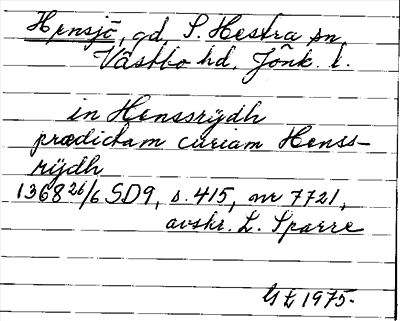 Hensjö, gd, S. Hestra sn
Västbo hd, Jönk. l.
in Henssrÿdh
prædictam curiam Henss-
rÿdh
1368 26/6 SD9, s. 415, nr 7721,
avskr. L. Sparre
GL 1975.